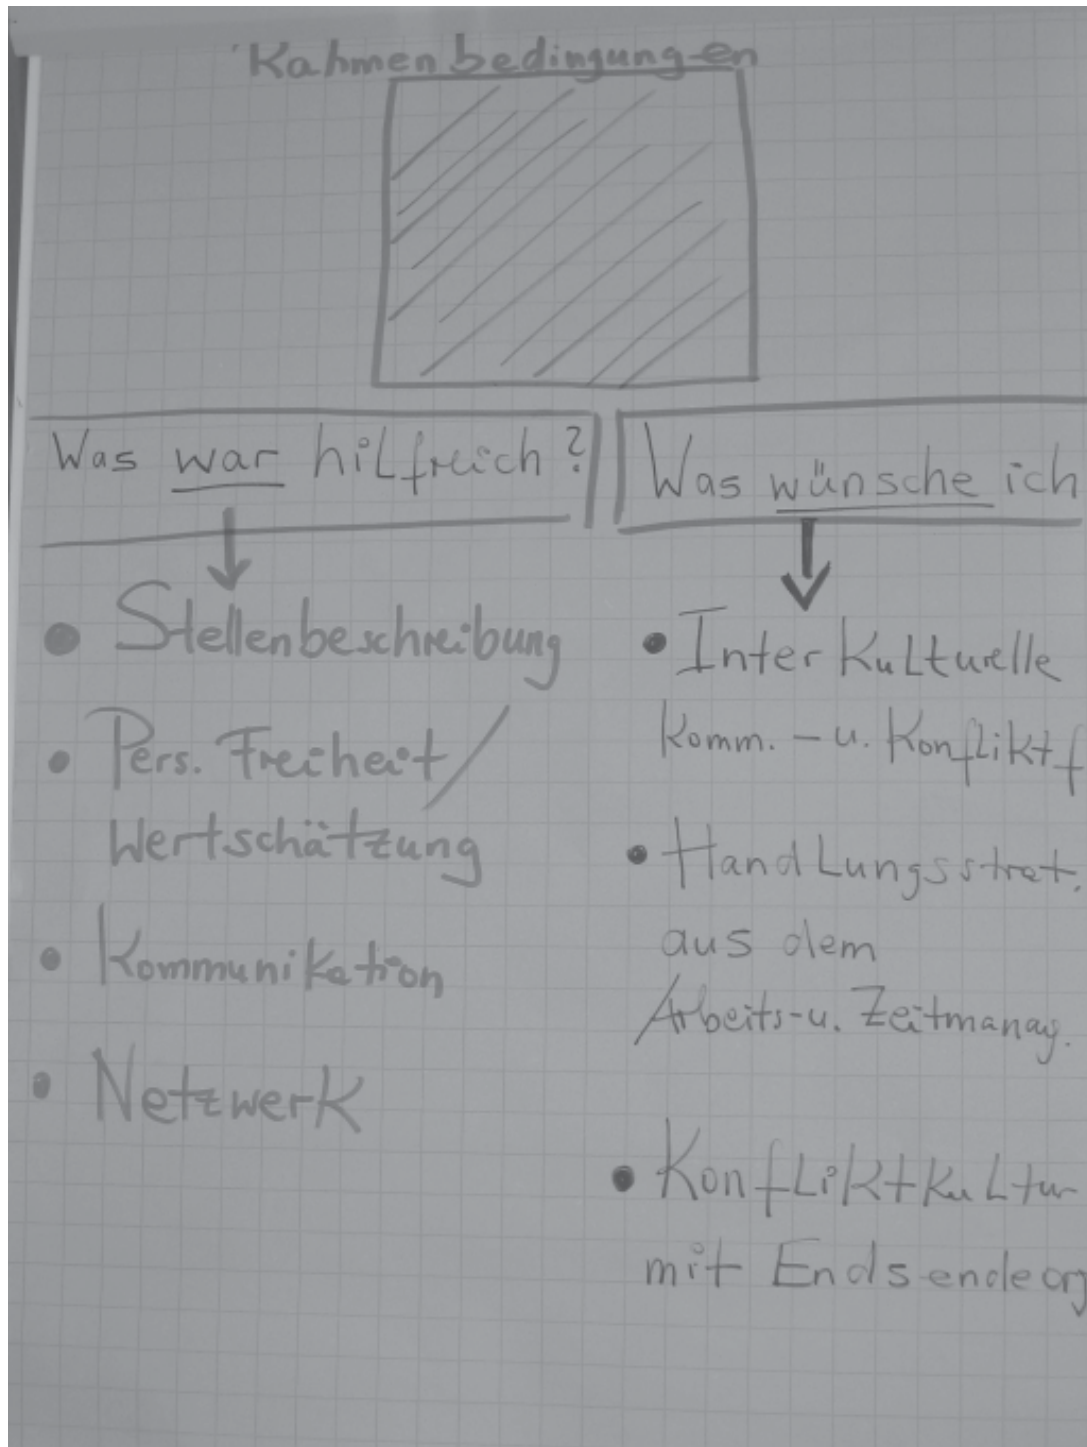 Rahmenbedingungen
Was war hilfreich?
• Stellenbeschreibung
• Pers. Freiheit/
Wertschätzung
• Kommunikation
• Netzwerk
Was wünsche ich
• Interkulturelle
Komm.-u. Konfliktf
• Handlungsstrat.
aus dem
Arbeits-u. Zeitmanag.
• Konfliktkultur
mit Endsendeorg